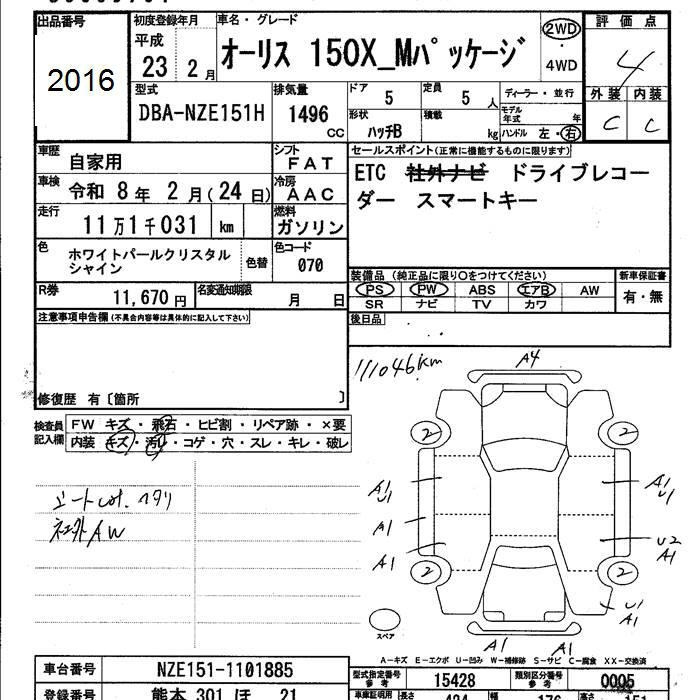 出品番号
2016
初度登録年月
平成
23 2 月
車名・グレード
オーリス 150X_Mパッケージ
2WD
・
4WD
評価点
4
外装 内装
C C
型式
DBA-NZE151H
排気量
1496
CC
ドア
5
定員
5 人
ディーラー・並行
形状
ハッチB
積載
kg
モデル年式 年
ハンドル 左・右
車歴
自家用
シフト
FAT
車検
令和 8 年 2 月(24 日)
冷房
AAC
走行
11万1千031 km
燃料
ガソリン
色
ホワイトパールクリスタル
シャイン
色替
色コード
070
R券
11,670 円
名変通知期限
月 日
セールスポイント(正常に機能するものに限ります)
ETC 社外ナビ ドライブレコー
ダー スマートキー
装備品(純正品に限り○をつけてください)
PS PW ABS エアB AW
SR ナビ TV カワ
新車保証書
有・無
後日品
注意事項申告欄(不具合内容等は具体的に記入して下さい)
修復歴 有〔箇所 〕
検査員
記入欄
FW キズ・飛石・ヒビ割・リペア跡・×要
内装 キズ・汚れ・コゲ・穴・スレ・キレ・破レ
111046km
A4
2 2
A1
U1
A1
U1
A1
A1
U2
A1
2 2
U1
A1
A1 A1
スペア
シートcot.ヘタリ
社外AW
A-キズ E-エクボ U-凹み W-補修跡 S-サビ C-腐食 XX-交換済
車台番号
NZE151-1101885
型式指定番号
参考
15428
類別区分番号
参考
0005
登録番号
熊本 301 ほ 21
車庫証明用
長さ